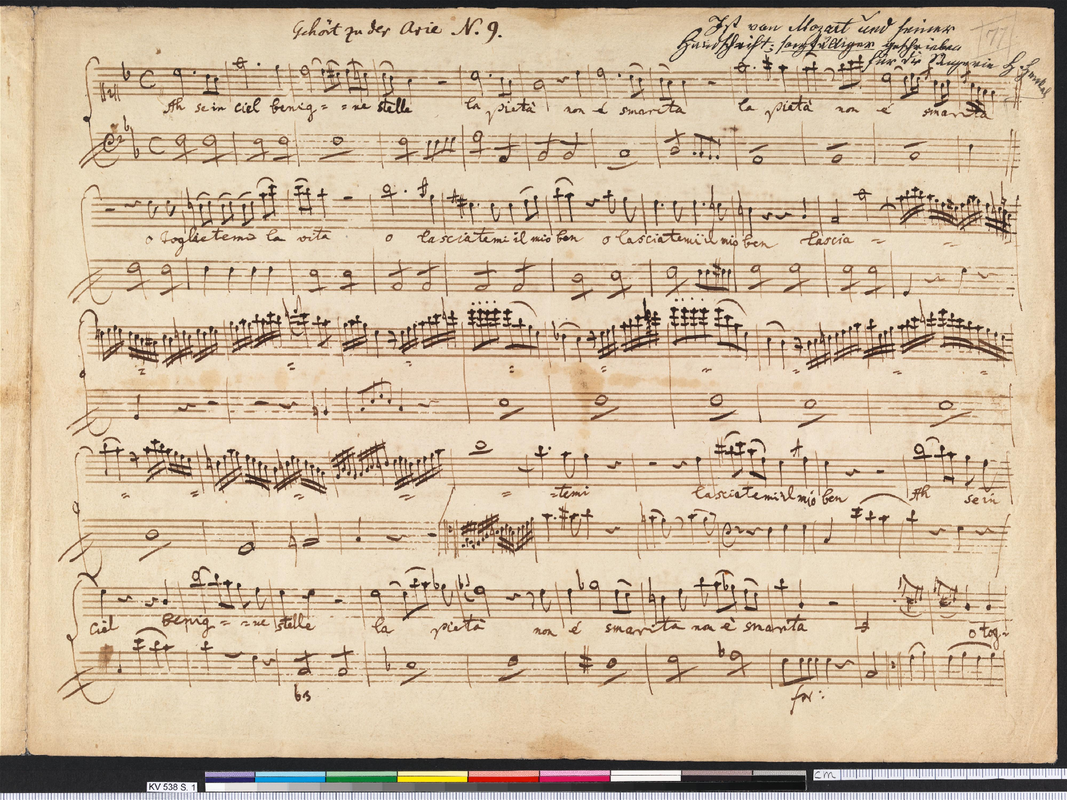 Gehört zu der Arie N. 9.
Ist von Mozart und seiner
Handschrift: sorgfältiger geschrieben
für die Sängerin
77
Ah se in ciel benig = = ne stelle la pietà non é smarita la pietà non é smarita
o toglietemi la vita o lasciatemi il mio ben o lasciatemi il mio ben lascia = =
= = = = = =
= = = = = temi lasciatemi il mio ben Ah se in
ciel benig = = ne stelle la pietà non é smarita non é smarita o tog=
for:
KV 538 S. 1
cm